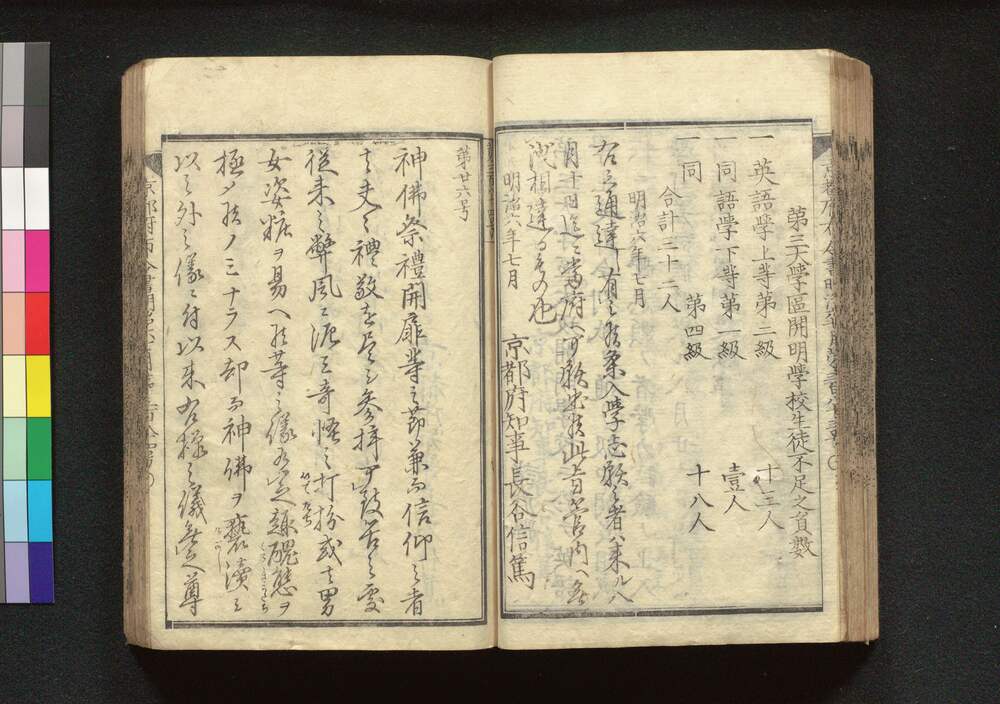 第三大學區開明學校生徒不足之員數
一 英語學上等第二級 十三人
一 同語學下等第一級 壹人
一 同 第四級 十八人
合計三十二人
明治六年七月
右之通達有之候条入學志願之者ハ来ル八
月十日迄ニ當府ヘ可願出候此旨管内ヘ無
洩相達るもの也
明治六年七月 京都府知事長谷信篤
第廿六号
神佛祭禮開扉等之節兼而信仰之者
ハ夫々禮敬を尽し参拝可致筈之處
従来之弊風ニ泥ミ奇怪之打扮或ハ男
女姿粧ヲ易ヘ候等之儀有之趣醜態ヲ
極メ候ノミナラス却而神佛ヲ褻瀆し
以之外之儀ニ付以来右様之儀無之尊